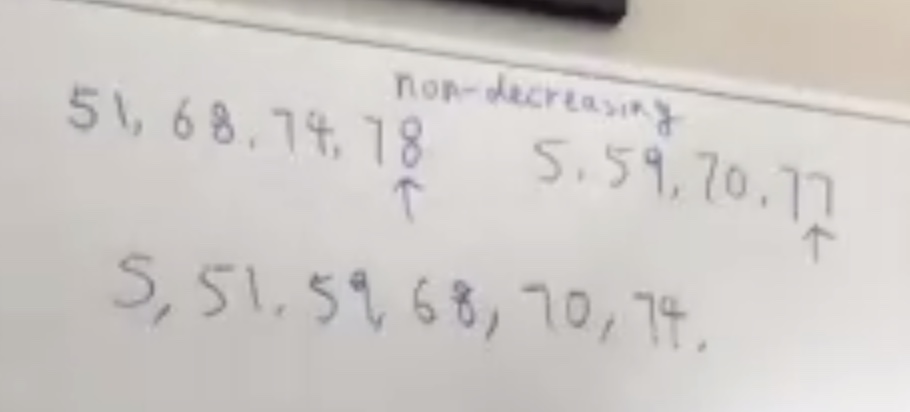 non-decreasing
51, 68, 74, 78
5, 59, 70, 77
↑ ↑
5, 51, 59, 68, 70, 74,